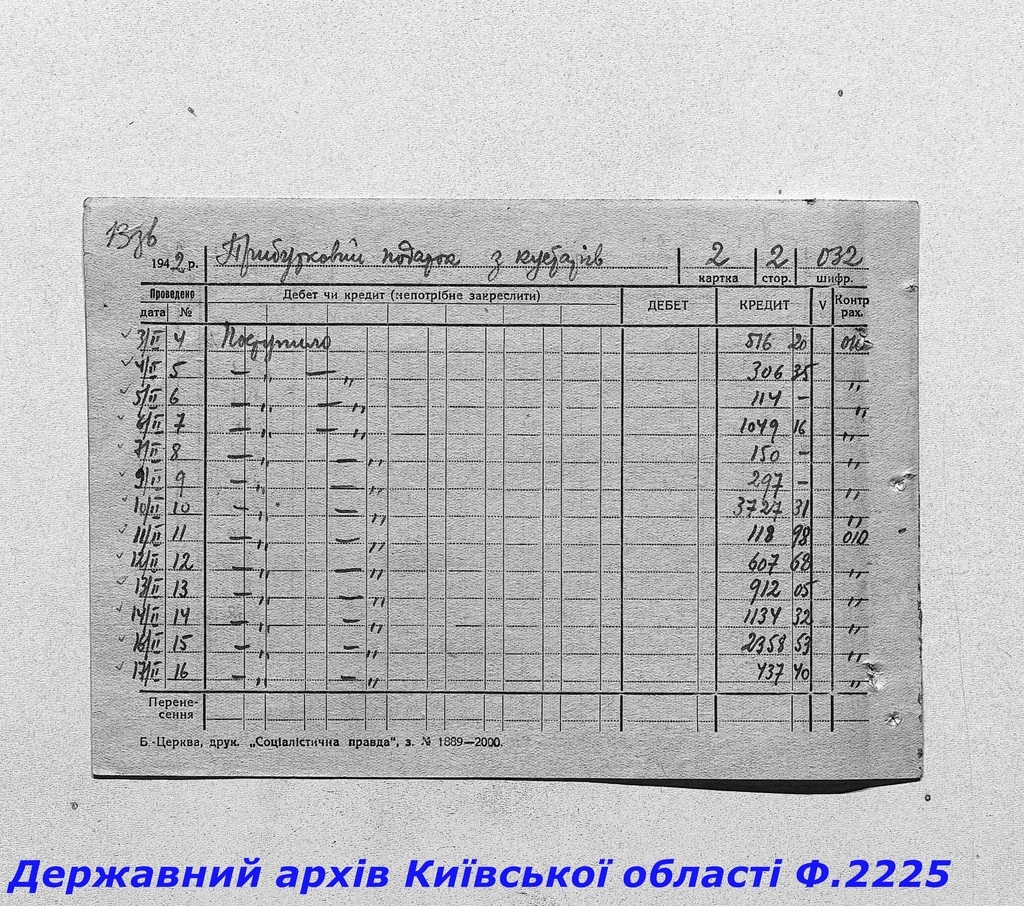 Взв
1942 р. Прибутковий податок з кустарів 2 картка 2 стор. 032 шифр.
Проведено дата № Дебет чи кредит (непотрібне закреслити) ДЕБЕТ КРЕДИТ V Контр рах.
3/II 4 Поступило 516 20
4/II 5 — „ — „ 306 35 „
5/II 6 — „ — „ 114 - „
6/II 7 — „ — „ 1049 16 „
7/II 8 — „ — „ 150 - „
9/II 9 — „ — „ 297 - „
10/II 10 — „ — „ 3727 31 „
11/II 11 — „ — „ 118 98 010
12/II 12 — „ — „ 607 68 „
13/II 13 — „ — „ 912 05 „
14/II 14 — „ — „ 1134 32 „
16/II 15 — „ — „ 2358 53 „
17/II 16 — „ — „ 437 40 „
Перене-
сення
Б.-Церква, друк. „Соціалістична правда“, з. № 1889—2000.
Державний архів Київської області Ф.2225